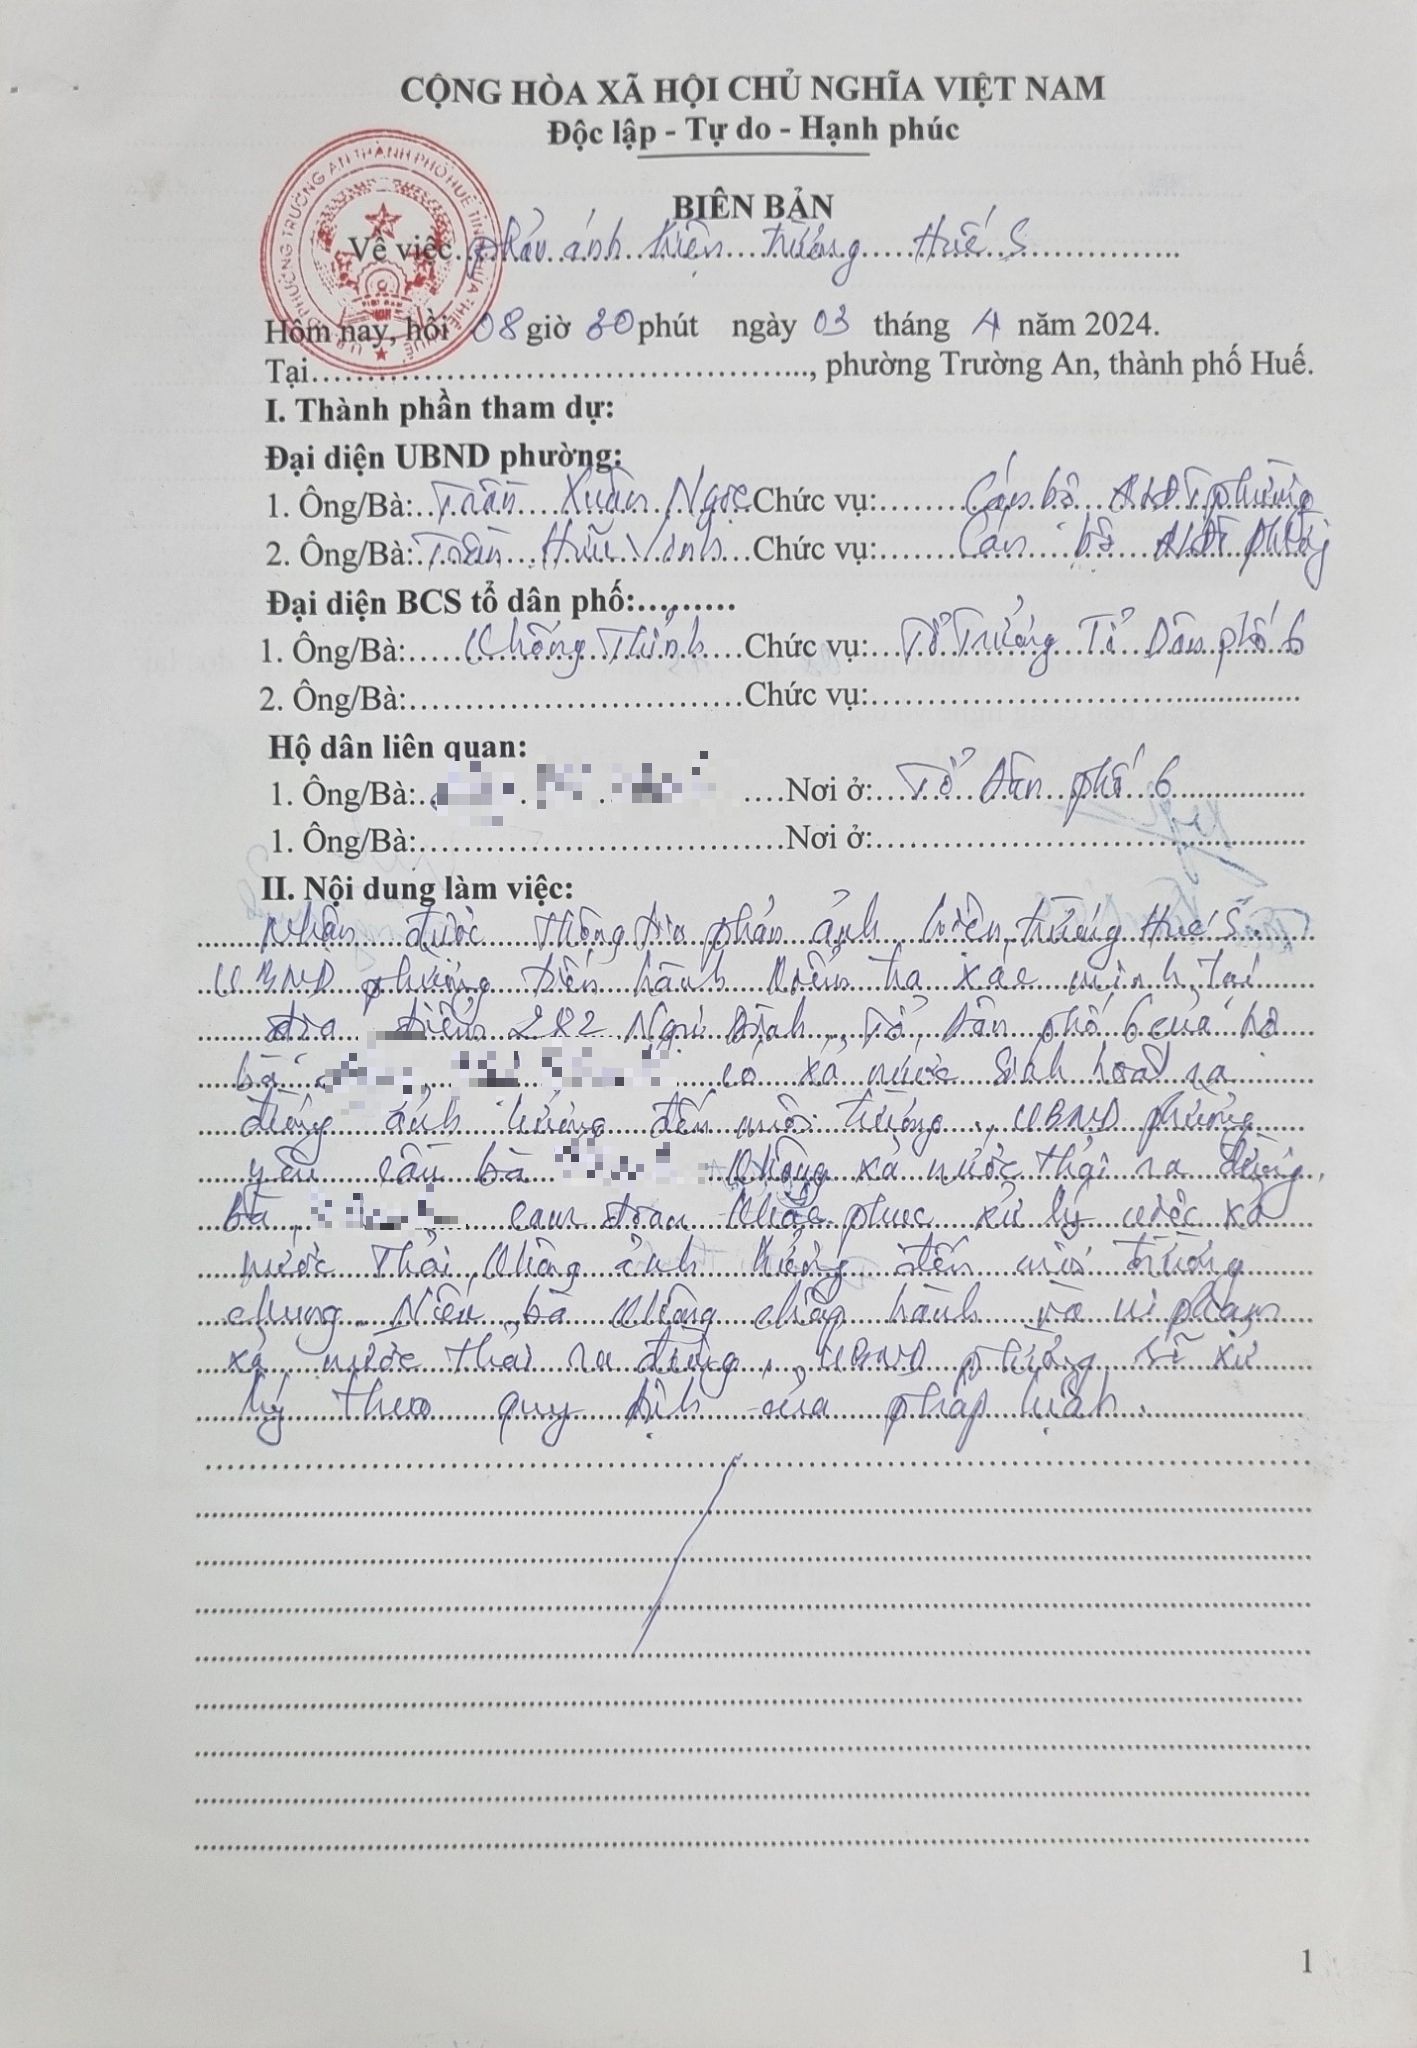 CỘNG HÒA XÃ HỘI CHỦ NGHĨA VIỆT NAM
Độc lập - Tự do - Hạnh phúc
BIÊN BẢN
Về việc phản ánh hiện trường Huế S
Hôm nay, hồi 08 giờ 30 phút ngày 03 tháng 4 năm 2024.
Tại......, phường Trường An, thành phố Huế.
I. Thành phần tham dự:
Đại diện UBND phường:
1. Ông/Bà: Trần Xuân Ngọc Chức vụ: Cán bộ phường
2. Ông/Bà: Trần Hữu Vinh Chức vụ: Cán bộ phường
Đại diện BCS tổ dân phố:..........
1. Ông/Bà: Thỉnh Chức vụ: Tổ Trưởng Tổ Dân phố 6
2. Ông/Bà:...... Chức vụ:......
Hộ dân liên quan:
1. Ông/Bà: Nơi ở: Tổ dân phố 6
1. Ông/Bà:...... Nơi ở:......
II. Nội dung làm việc:
Nhận được thông tin phản ánh hiện trường Huế S.
UBND phường tiến hành kiểm tra xác minh tại
địa điểm 282 Ngự Bình, Tổ dân phố 6 của hộ
bà có xả nước sinh hoạt ra
đường ảnh hưởng đến môi trường, UBND phường
yêu cầu bà không xả nước thải ra đường,
bà cam đoan khắc phục xử lý nước xả
nước thải không ảnh hưởng đến môi trường
chung. Nếu bà không chấp hành và vi phạm
xả nước thải ra đường, UBND phường sẽ xử
lý theo quy định của pháp luật.
1